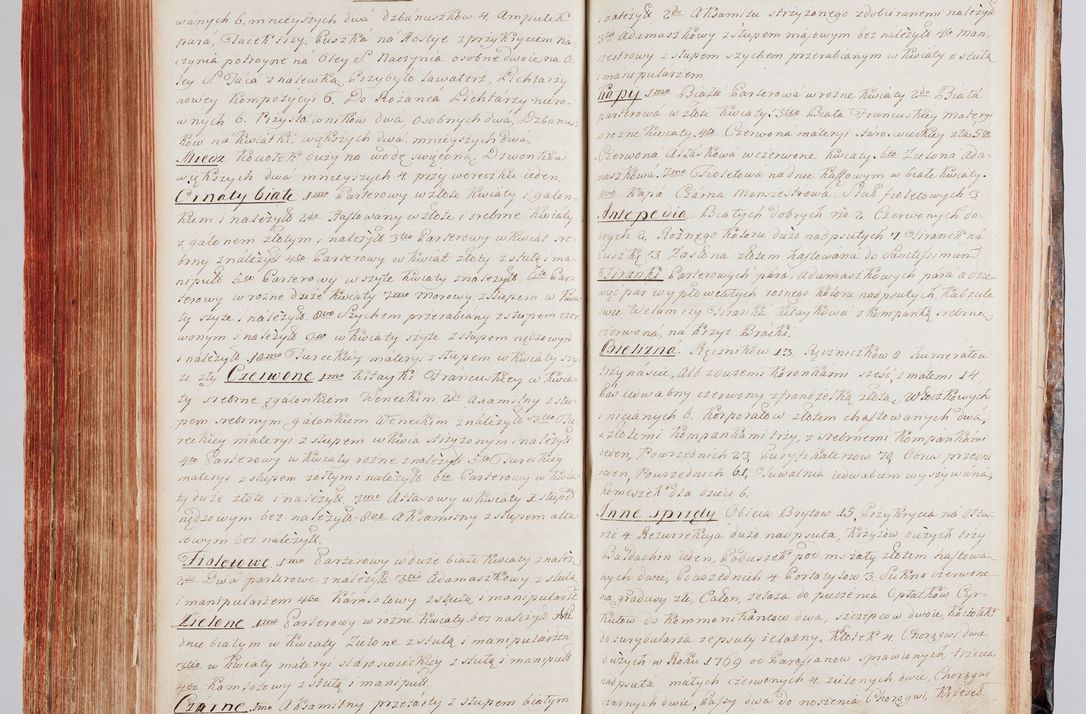 wanych 6. mnieyszych dwá Dzbánuszków 4. Ampułek
pará, Tacek trzy, Puszka ná Hostye z przykryciem Na-
czynia potroyne na Oley S. Naczynia osobne dwoie na O-
ley S. Taca z nalewką. Przybyło Lawaterz, Lichtarzy
nowey Kompozycyi 6. Do Rożáncá Lichtarzy nierow-
wnych 6. Przystáwników dwa osobnych dwá, Dzbánusz-
ków ná Kwiatki, większych dwá, mnieyszych dwá.
Miedz Kociołek duży na wodę święconą, Dzwonków
większych dwá mnieyszych 4 przy woreczku ieden.
Ornaty białe 1mo Parterowy w złote Kwiáty z galon-
kiem i należyt: 2do Haftowany w złote i srebrne Kwiáty
z galonem złotym i należyt: 3tio Parterowy w Kwiát sre-
brny z należyt: 4to Parterowy w Kwiát złoty z stułą i ma-
nipuł: 5to Parterowy w szyte Kwiáty z należyt: 6to Par-
terowy w rożne duże Kwiáty 7mo Morowy z słupem w Kwia-
ty szyte i należyt: 8vo Szychem przerabiany z słupem czer-
wonym i należyt: 9no w Kwiáty szyte z słupem nędzowym
i należyt: 10mo Tureckiey materyi z słupem w Kwiáty szy-
te zły Czerwone 1mo Kitayki Fráncuskiey w Kwia-
ty srebrne z galonkiem Weneckim 2do Axamitny z słu-
pem srebrnym gálonkiem Weneckim z należyt: 3tio Tu-
reckiey materyi z słupem w Kwia strzyżonym i należyt:
4to Parterowy w Kwiáty rożne z należyt: 5to Tureckiey
materyi z słupem żołtym i należyt: 6to Parterowy w Kwia-
ty duże złote i należyt: 7mo Atłasowy w Kwiáty z słupē
nędzowym bez należyt: 8vo Aksamitny z słupem atła-
sowym bez należyt:
Fioletowe 1mo Parterowy w duże białe Kwiáty z należ:
2do Dwa parterowe z należyt: 3tio Adamaszkowy z stułą
i manipularzem 4to Kamlotowy z stułą i manipularzē
Zielone 1mo Parterowy w rożne Kwiáty bez należyt: Ná
dnie białym w Kwiaty Zielone z stułą i manipularzem
3tio w Kwiáty materyi stároświeckiey z stułą i manipuł:
4to Kamlotowy z stułą i manipuł:
Czarne 1mo Aksamitny przetárty z słupem białym
i należyt: 2do Aksamitu strzyżonego z dobieranem i należyt:
3tio Adamaszkowy z słupem majowym bez należyt: 4to man-
zestrowy z słupem szychem przerabianym w Kwiáty z stułą
i manipularzem
Kapy 1mo Biała Parterowá w rożne Kwiáty 2do Biáłá
parterowá w złote Kwiáty. 3tio Biała Francuskiey materyi
w rożne Kwiáty. 4to Czerwona materyi staroswieckiey zła. 5to
Czerwona Atłásková w czerwone Kwiaty. 6to Zielona Ada-
maszkowa. 7mo Fioletowa na dnie kaffowym w białe Kwiáty.
8vo Kapa Czarna Manszestrowá. Stuł fioletowych 3
Antepedia Białych dobrych no 2. Czerwonych do-
brych 2. Rożnego Koloru dużo nadpsutych 7 Firanek ná
Puszkę 3 Zasłona złotem haftowána do Sanctissimum
Firanki Parterowych pará, Adamaszkowych para a dzie-
więć par wypłowiałych rożnego koloru nadpsutych Kabzule
dwie Welum czy Firanka kitaykowa z Kompanką srebrną
czerwoná, na Krzyż Bracki.
Bielizná. Ręczników 13. Ręczniczków 9. humerałow
trzynaście, Alb z dużemi koronkámi sześć, z małemi 14,
Pas iedwabny czerwony z frandzelką złotą, Włoczkowych
i nicianych 6. Korporałow złotem chaftowanych dwá,
z złotemi Kompankámi trzy, z srebrnemi Kompánkámi
ieden, Powszednich 23 Puryfikaterzow 79, Obrus przedni
ieden, Powszednich 61, Tuwalnia iedwabiem wyszywáná,
Komeszek dla dzieci 6.
Inne sprzęty Obicia Brytow 15, Przykrycia ná Ołta-
rze 4 Rezurrekcya dużo nadpsuta, Krzyżów dużych trzy
Baldachin ieden, Poduszek pod mszały złotem haftowa-
nych dwie, Powszednich 4 Portatylow 3. Sukno czerwone
na gradusy złe, Całun, żelaza do pieczenia Opłatków Cyr-
kułow do Kommonikantow dwa, szczypcow dwoie, Kociołek
do turybularza zepsuty żelazny. Kłotek 4 Chorągwi dwie
dużych w Roku 1769 od Parafianow sprawionych, trzecia
nadpsuta małych czerwonych 4. zielonych dwie, Chorągwi
czarnych dwie, Pássy dwa do noszenia Chorągwi, Krzeseł